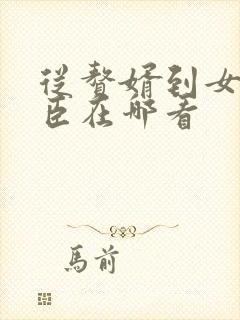 从赘婿到女
臣在哪看
馬前